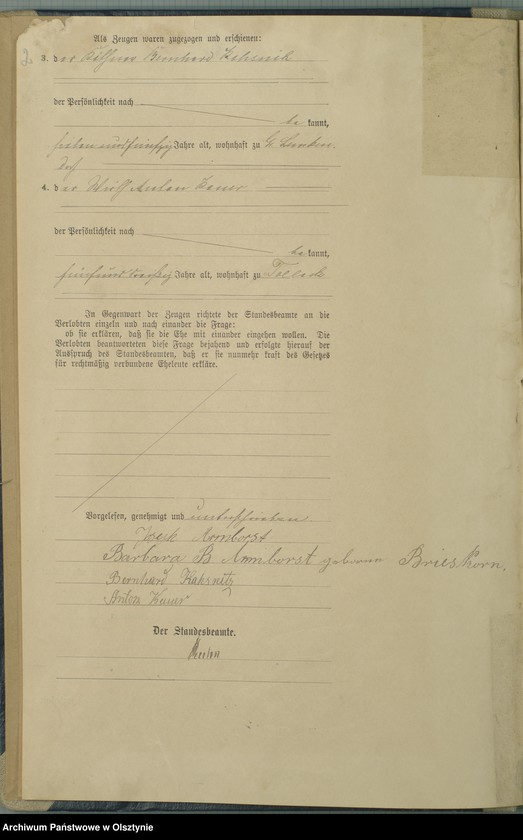 2
Als Zeugen waren zugezogen und erschienen:
3. der Bernhard
der Persönlichkeit nach
be kannt,
sieben und fünfzig Jahre alt, wohnhaft zu Gr.
dorf
4. der Anton
der Persönlichkeit nach
be kannt,
fünf und dreißig Jahre alt, wohnhaft zu
In Gegenwart der Zeugen richtete der Standesbeamte an die
Verlobten einzeln und nach einander die Frage:
ob sie erklären, daß sie die Ehe mit einander eingehen wollen. Die
Verlobten beantworteten diese Frage bejahend und erfolgte hierauf der
Ausspruch des Standesbeamten, daß er sie nunmehr kraft des Gesetzes
für rechtmäßig verbundene Eheleute erkläre.
Vorgelesen, genehmigt und unterschrieben
Armborst
Barbara B Armborst geborene Brieskorn.
Bernhard
Anton
Der Standesbeamte.
Archiwum Państwowe w Olsztynie